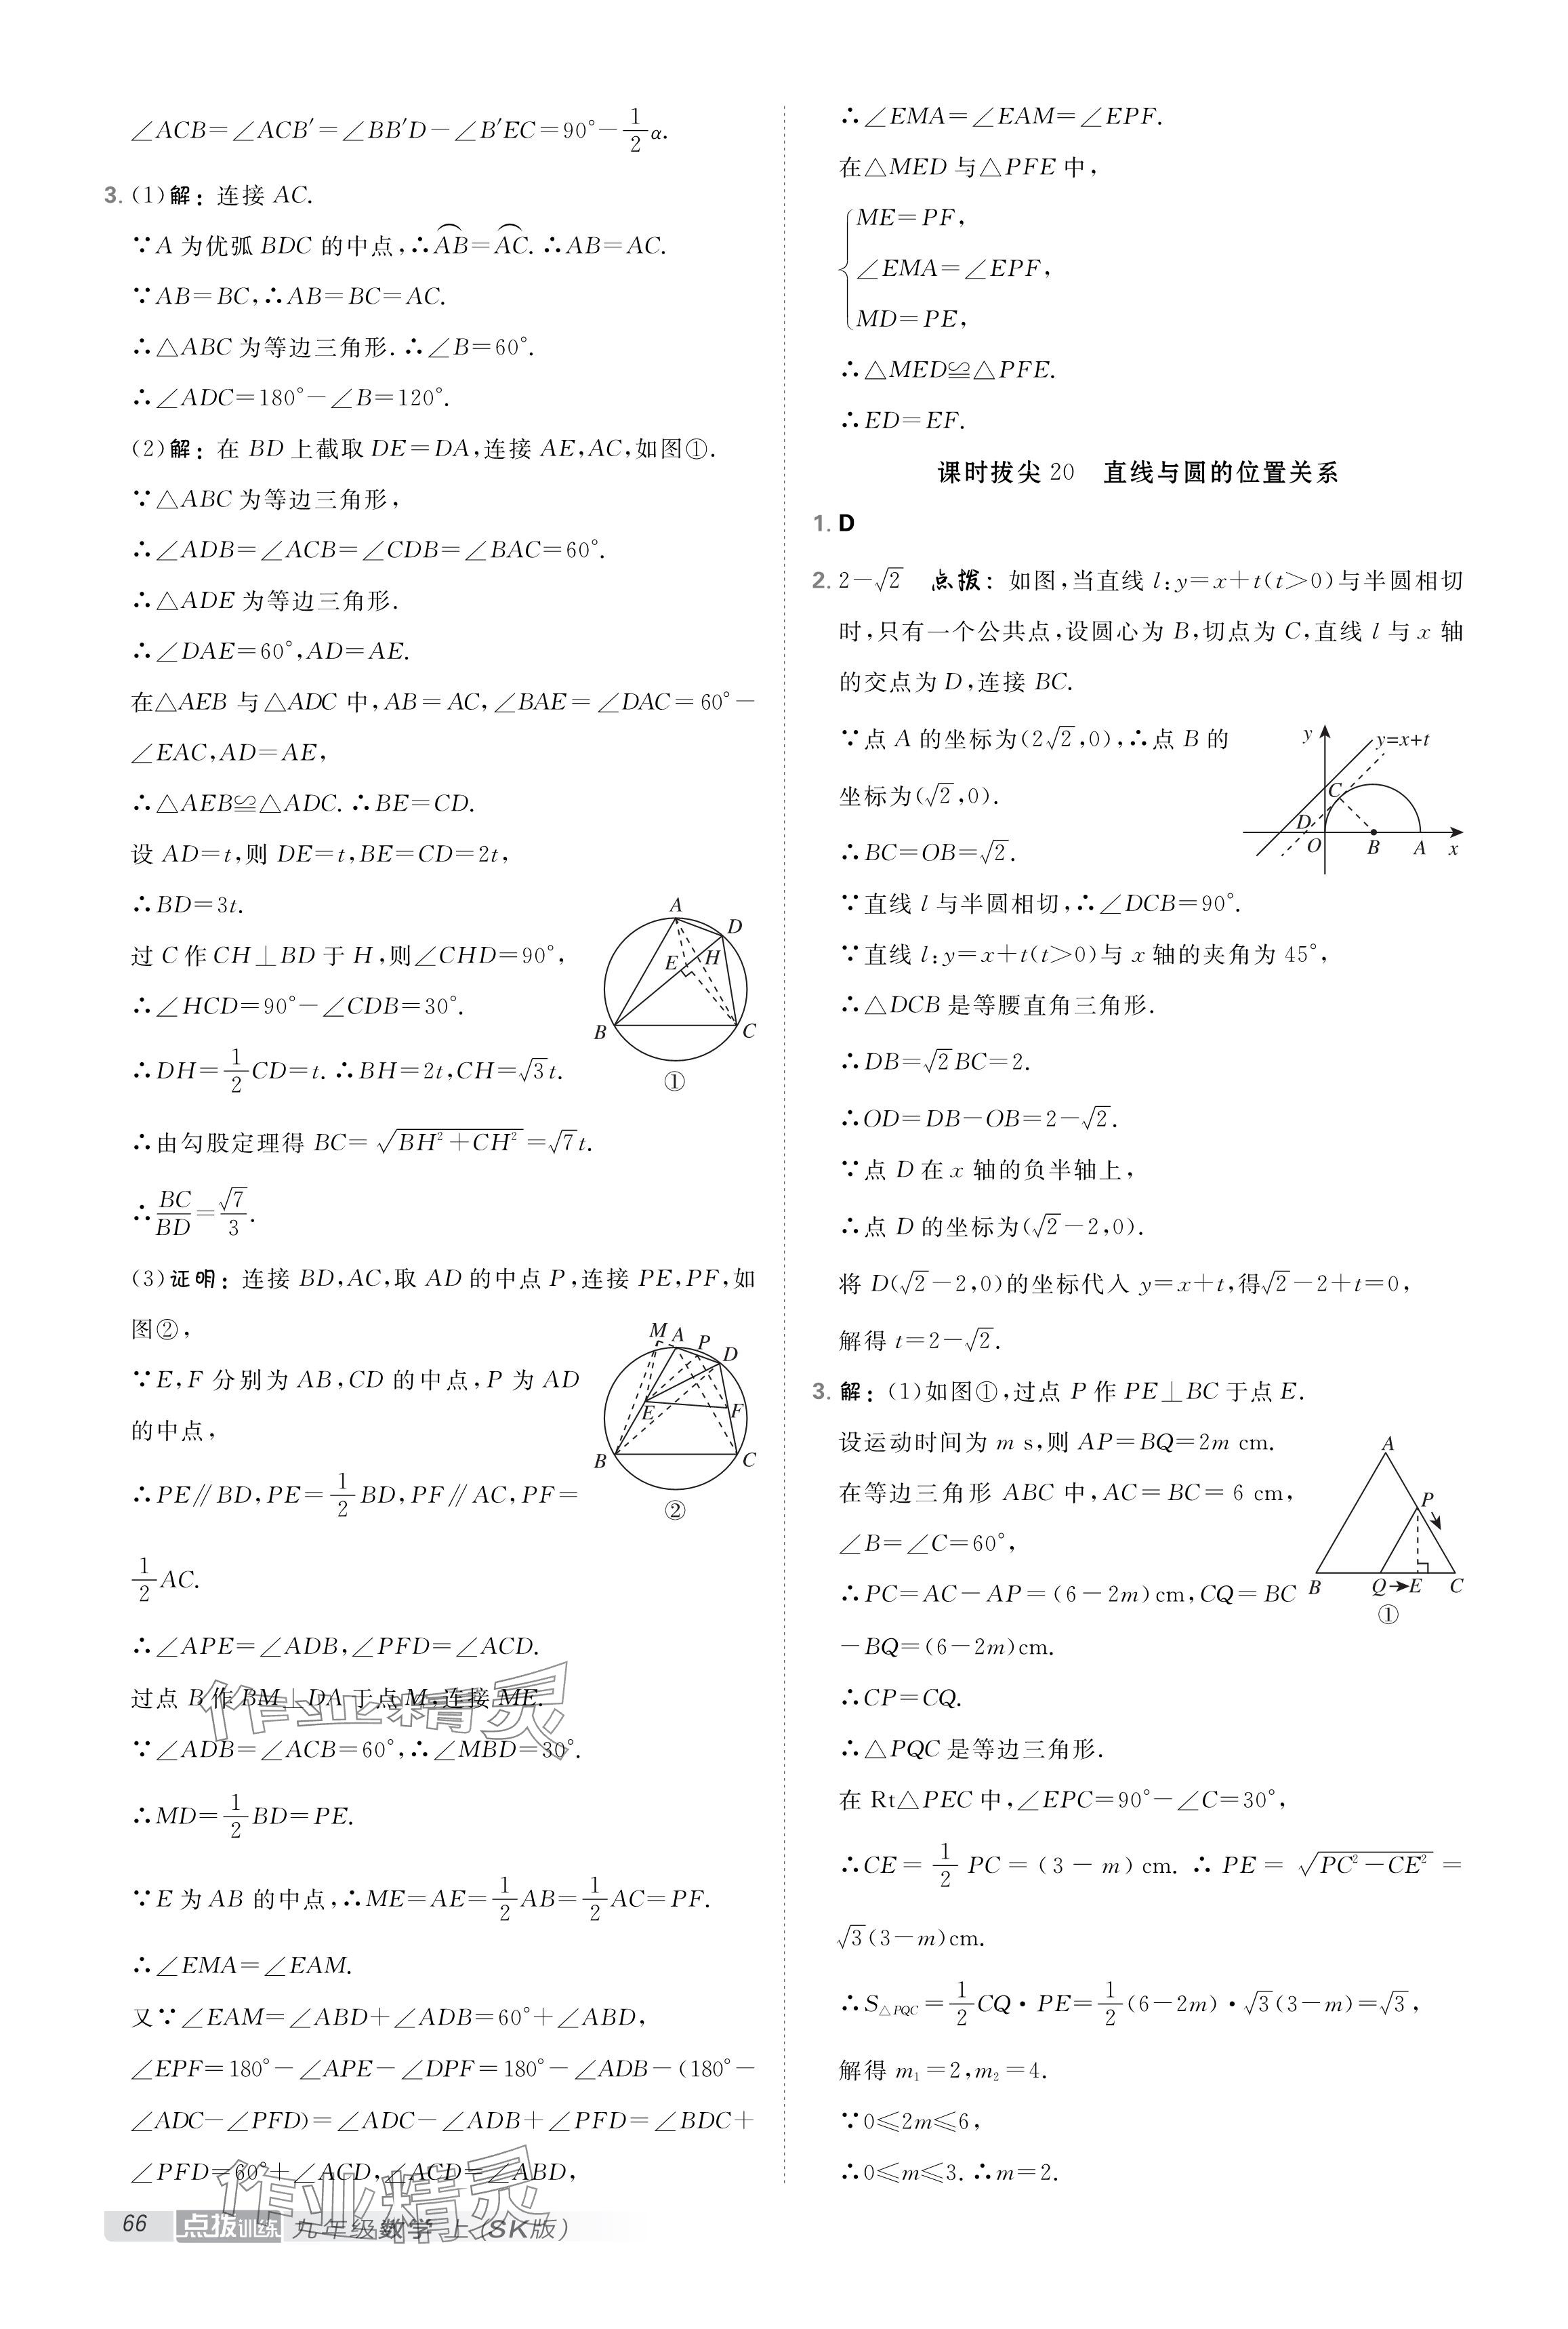 ∠ACB=∠ACB′=∠BB′D−∠B′EC=90°−1/2α.
3. (1)解：连接 AC.
∵A 为优弧 BDC 的中点,∴⌒AB=⌒AC. ∴AB=AC.
∵AB=BC,∴AB=BC=AC.
∴△ABC 为等边三角形. ∴∠B=60°.
∴∠ADC=180°−∠B=120°.
(2)解：在 BD 上截取 DE=DA,连接 AE,AC,如图①.
∵△ABC 为等边三角形,
∴∠ADB=∠ACB=∠CDB=∠BAC=60°.
∴△ADE 为等边三角形.
∴∠DAE=60°,AD=AE.
在△AEB 与△ADC 中,AB=AC,∠BAE=∠DAC=60°−
∠EAC,AD=AE,
∴△AEB≌△ADC. ∴BE=CD.
设 AD=t,则 DE=t,BE=CD=2t,
∴BD=3t.
过 C 作 CH⊥BD 于 H,则∠CHD=90°,
∴∠HCD=90°−∠CDB=30°.
∴DH=1/2CD=t. ∴BH=2t,CH=√3t.
A
D
E
H
B
C
①
∴由勾股定理得 BC=√(BH²+CH²)=√7t.
∴BC/BD=√7/3.
(3)证明：连接 BD,AC,取 AD 的中点 P,连接 PE,PF,如
图②,
∵E,F 分别为 AB,CD 的中点,P 为 AD
的中点,
∴PE∥BD,PE=1/2BD,PF∥AC,PF=
1/2AC.
M A P
D
E
F
B
C
②
∴∠APE=∠ADB,∠PFD=∠ACD.
过点 B 作 BM⊥DA 于点 M,连接 ME.
∵∠ADB=∠ACB=60°,∴∠MBD=30°.
∴MD=1/2BD=PE.
∵E 为 AB 的中点,∴ME=AE=1/2AB=1/2AC=PF.
∴∠EMA=∠EAM.
又∵∠EAM=∠ABD+∠ADB=60°+∠ABD,
∠EPF=180°−∠APE−∠DPF=180°−∠ADB−(180°−
∠ADC−∠PFD)=∠ADC−∠ADB+∠PFD=∠BDC+
∠PFD=60°+∠ACD,∠ACD=∠ABD,
∴∠EMA=∠EAM=∠EPF.
在△MED 与△PFE 中,
ME=PF,
∠EMA=∠EPF,
MD=PE,
∴△MED≌△PFE.
∴ED=EF.
课时拔尖 20 直线与圆的位置关系
1. D
2. 2−√2 点拨：如图,当直线 l:y=x+t(t>0)与半圆相切
时,只有一个公共点,设圆心为 B,切点为 C,直线 l 与 x 轴
的交点为 D,连接 BC.
∵点 A 的坐标为(2√2,0),∴点 B 的
坐标为(√2,0).
∴BC=OB=√2.
y
y=x+t
C
D
O
B
A
x
∵直线 l 与半圆相切,∴∠DCB=90°.
∵直线 l:y=x+t(t>0)与 x 轴的夹角为 45°,
∴△DCB 是等腰直角三角形.
∴DB=√2BC=2.
∴OD=DB−OB=2−√2.
∵点 D 在 x 轴的负半轴上,
∴点 D 的坐标为(√2−2,0).
将 D(√2−2,0)的坐标代入 y=x+t,得√2−2+t=0,
解得 t=2−√2.
3. 解：(1)如图①,过点 P 作 PE⊥BC 于点 E.
设运动时间为 m s,则 AP=BQ=2m cm.
在等边三角形 ABC 中,AC=BC=6 cm,
∠B=∠C=60°,
∴PC=AC−AP=(6−2m)cm,CQ=BC
−BQ=(6−2m)cm.
A
P
B
Q→E
C
①
∴CP=CQ.
∴△PQC 是等边三角形.
在 Rt△PEC 中,∠EPC=90°−∠C=30°,
∴CE=1/2PC=(3−m)cm. ∴PE=√(PC²−CE²)=
√3(3−m)cm.
∴S△PQC=1/2CQ·PE=1/2(6−2m)·√3(3−m)=√3,
解得 m₁=2,m₂=4.
∵0≤2m≤6,
∴0≤m≤3. ∴m=2.
作业精灵
作业精灵
66 点拨训练 九年级数学 上（SK版）